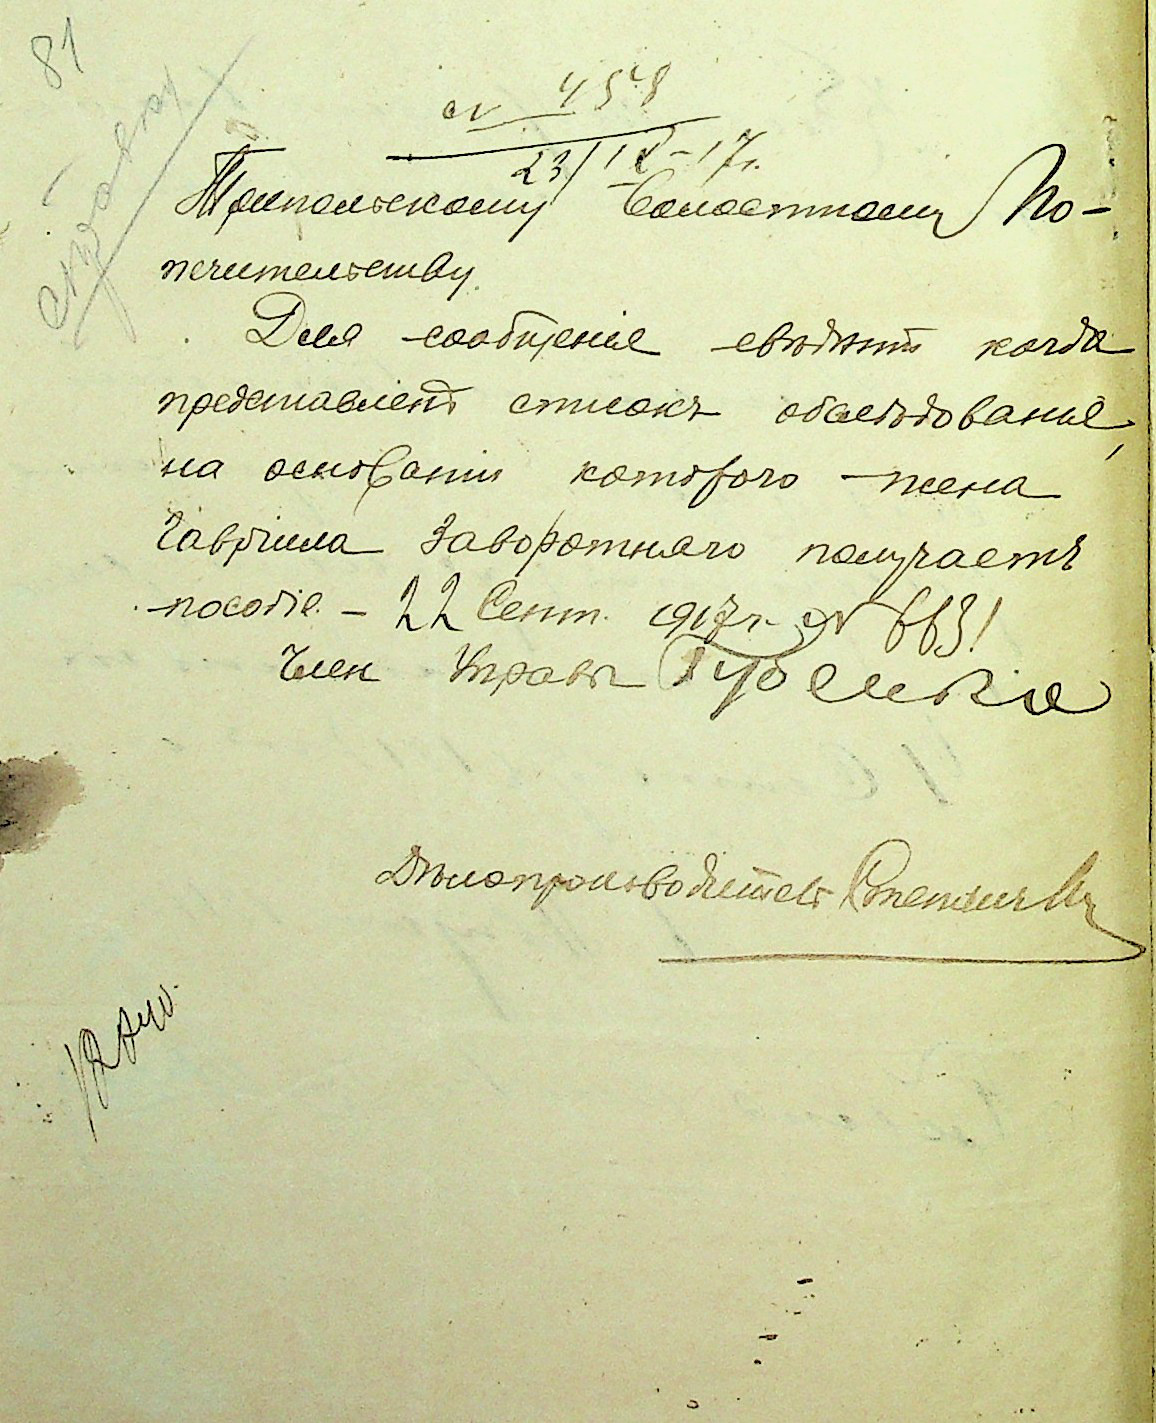 81
справку
№ 458
23/IX-17г.
Трипольскому Волостному По-
печительству.
Для сообщенія свѣдѣній когда
представленъ списокъ обслѣдованія,
на основаніи котораго жена
Гавріила Заворотняго получаетъ
пособіе. – 22 Сент. 1917г. № 6631
Член Управы Губенко
Дѣлопроизводитель